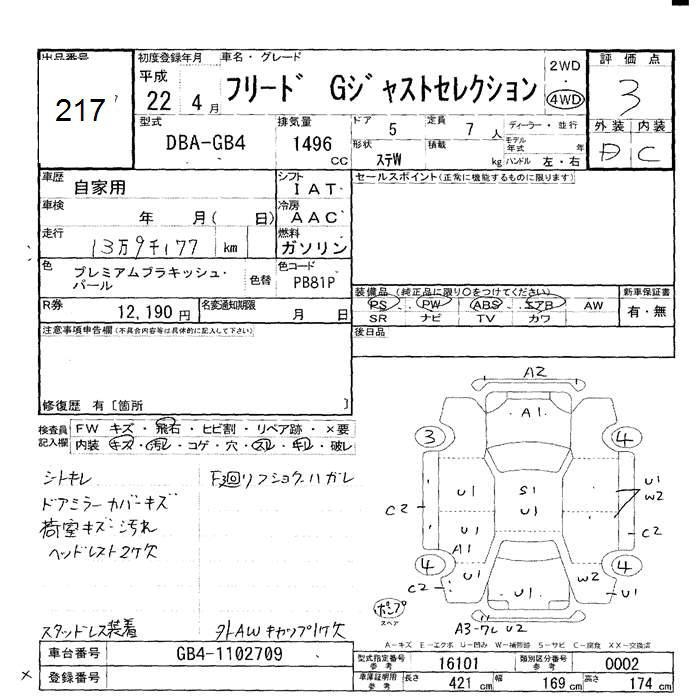 出品番号
217
初度登録年月
平成
22 4 月
車名・グレード
フリード Gジャストセレクション
2WD
・
4WD
評価点
3
型式
DBA-GB4
排気量
1496 CC
ドア 5
定員 7 人
形状 ステW
積載 kg
ディーラー・並行
モデル年式 年
ハンドル 左・右
外装 内装
D C
車歴
自家用
シフト
IAT
セールスポイント(正常に機能するものに限ります)
車検
年 月( 日)
冷房
AAC
走行
13万9千177 km
燃料
ガソリン
色
プレミアムブラキッシュ・パール
色替
色コード
PB81P
装備品(純正品に限り○をつけてください)
PS PW ABS エアB AW
SR ナビ TV カワ
新車保証書
有・無
R券
12,190円
名変通知期限
月 日
後日品
注意事項申告欄(不具合内容等は具体的に記入して下さい)
修復歴 有[箇所 ]
検査員記入欄
FW キズ・飛石・ヒビ割・リペア跡・×要
内装 キズ・汚レ・コゲ・穴・スレ・キレ・破レ
シトキレ
F廻リフショクハガレ
ドアミラーカバーキズ
荷室キズ・汚れ
ヘッドレスト2ケ欠
スタッドレス装着
外AWキャップ1ケ欠
A2
A1
3
4
U1
S1
U1
U1
W2
C2
U1
A1
C2
4
4
U1
C2
W2
U1
U1
ポンプ
スペア
A3-ワレ U2
A-キズ E-エクボ U-凹み W-補修跡 S-サビ C-腐食 XX-交換済
車台番号
GB4-1102709
型式指定番号 参考
16101
類別区分番号 参考
0002
登録番号
車庫証明用 参考
長さ 421 cm
幅 169 cm
高さ 174 cm